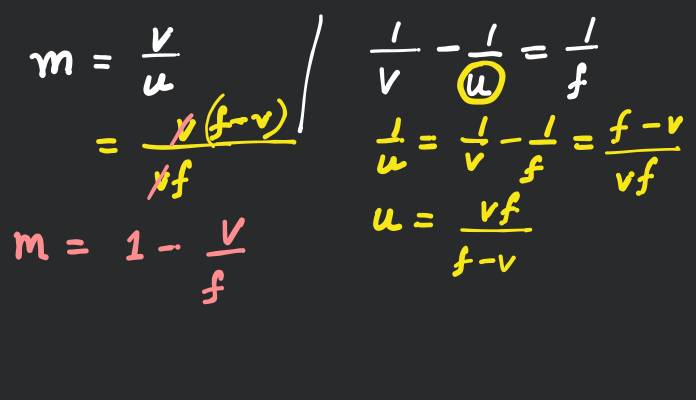 m = v/u
= v(f-v)/vf
m = 1 - v/f
1/v - 1/u = 1/f
1/u = 1/v - 1/f = f-v/vf
u = vf/f-v